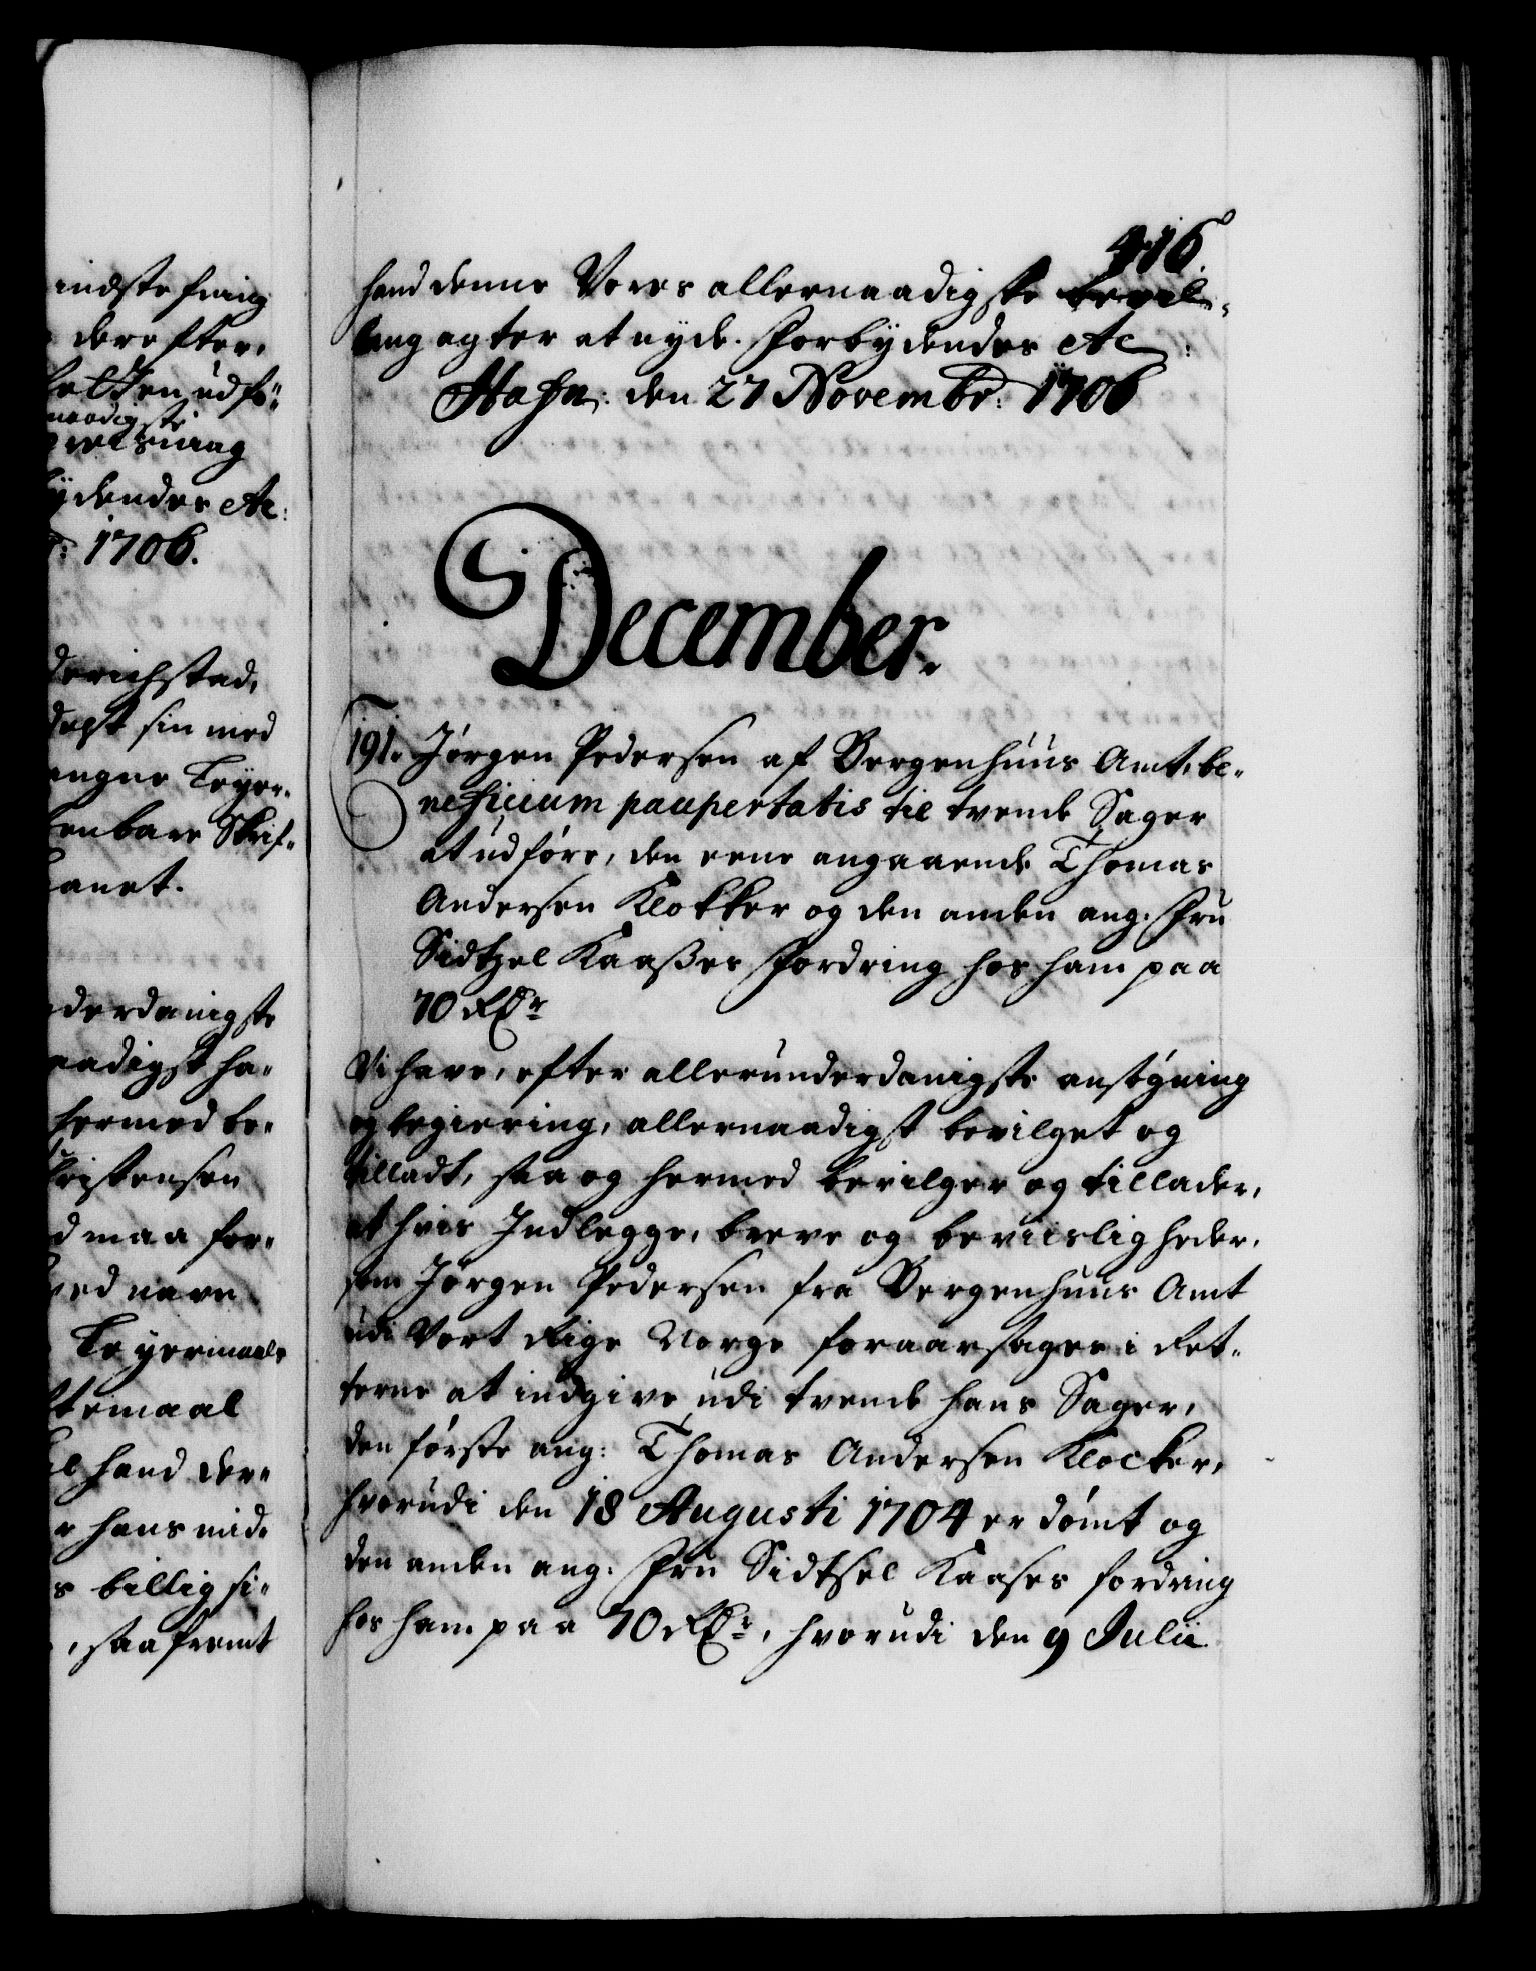 indste ‑
derefter,
udfø‑
naadigste
viisning
ydendes etc:
1706.
derichstad,
sin med
Leyer‑
benbare Skrif‑
derdanigste
naadigst ha‑
hermed be‑
Christensen
d maa for‑
ved navn
Leyermaals
temaal
hand der‑
hans mid‑
billig
, saafremt
416.
hand denne Vores allernaadigste bevil‑
ling agter at nyde. Forbydendes etc:
Hafn: den 27 Novembr: 1706
December.
191. Jørgen Pedersen af Bergenhuus Amt, be‑
neficium paupertatis til tvende Sager
at udføre, den eene angaaende Thomas
Andersen Klokker og den anden ang: Fru
Sidtzel Kaaßes Fordring hos ham paa
70 Rdr
Vi have, efter allerunderdanigste ansøgning
og begiering, allernaadigst bevilget og
tilladt, saa og hermed bevilger og tillader,
at hvis Indlegge, breve og beviisligheder,
som Jørgen Pedersen fra Bergenhuus Amt
udi Vort Rige Norge foraarsages i Ret‑
terne at indgive udi tvende hans Sager,
den første ang: Thomas Andersen Klocker,
hvorudi den 18 Augusti 1704 er dømt og
den anden ang: Fru Sidtsel Kaases fordring
hos ham paa 70 Rdr, hvorudi den 9 Julii